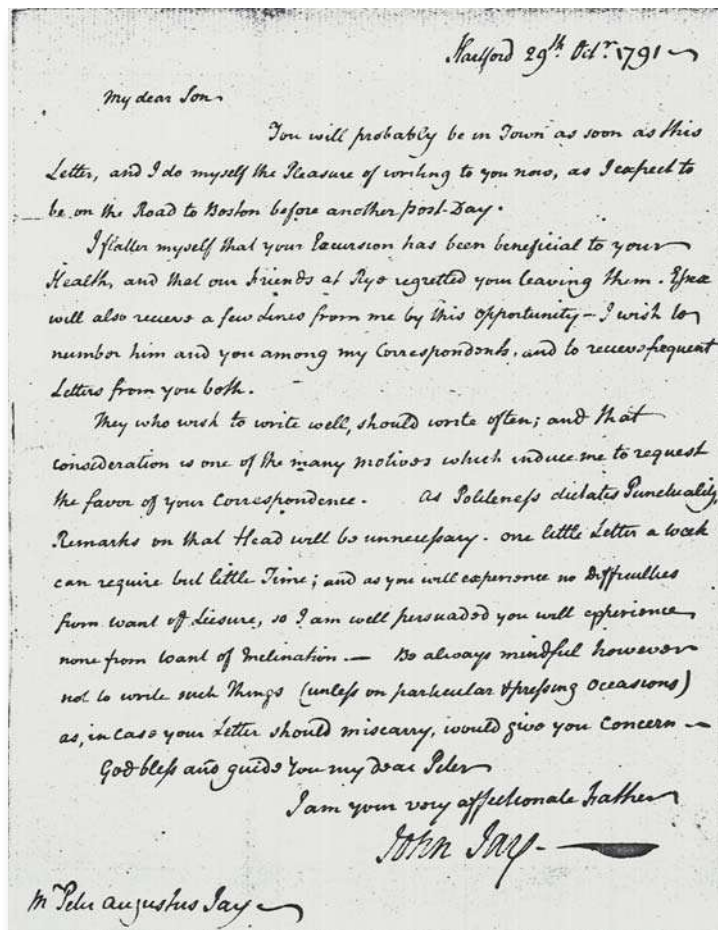 Hartford 29th. Octr. 1791
My dear Son
You will probably be in Town as soon as this
Letter, and I do myself the Pleasure of writing to you now, as I expect to
be on the Road to Boston before another Post-Day.
I flatter myself that your Excursion has been beneficial to your
Health, and that our Friends at Rye regretted your leaving them.
will also receive a few Lines from me by this opportunity — I wish to
number him and you among my Correspondents, and to receive frequent
Letters from you both.
They who wish to write well, should write often; and that
consideration is one of the many motives which induce me to request
the favor of your Correspondence. As Politeness dictates Punctuality,
Remarks on that Head will be unnecessary. one little Letter a week
can require but little Time; and as you will experience no Difficulties
from want of Leisure, so I am well persuaded you will experience
none from want of Inclination. — Be always mindful however
not to write such Things (unless on particular & pressing occasions)
as, in case your Letter should miscarry, would give you Concern —
God bless and guide You my dear Peter
I am your very affectionate Father
John Jay.
Mr Peter Augustus Jay